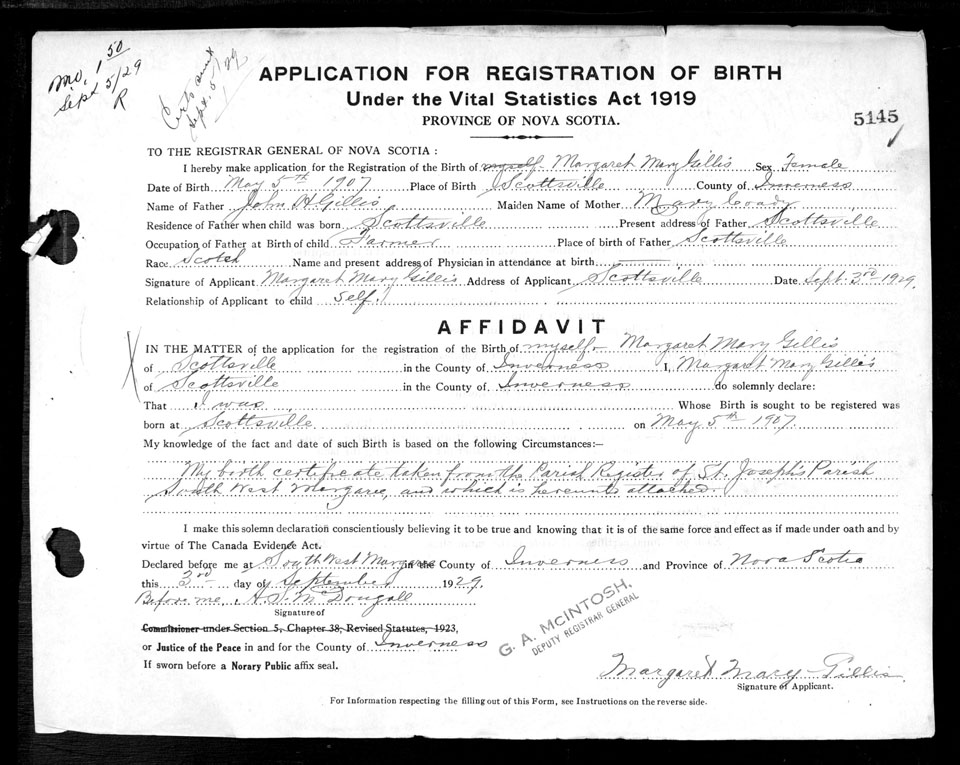 M.O. 1 50
Sept 5/29
R
Certs sent
Sept. 5/29
APPLICATION FOR REGISTRATION OF BIRTH
Under the Vital Statistics Act 1919
PROVINCE OF NOVA SCOTIA.
5145
TO THE REGISTRAR GENERAL OF NOVA SCOTIA:
I hereby make application for the Registration of the Birth of myself Margaret Mary Gillis Sex Female
Date of Birth May 5th 1907 Place of Birth Scottsville County of Inverness
Name of Father John H Gillis Maiden Name of Mother Mary Coady
Residence of Father when child was born Scottsville Present address of Father Scottsville
Occupation of Father at Birth of child Farmer Place of birth of Father Scottsville
Race Scotch Name and present address of Physician in attendance at birth
Signature of Applicant Margaret Mary Gillis Address of Applicant Scottsville Date Sept. 3rd 1929.
Relationship of Applicant to child self.
AFFIDAVIT
IN THE MATTER of the application for the registration of the Birth of myself Margaret Mary Gillis
of Scottsville in the County of Inverness I, Margaret Mary Gillis
of Scottsville in the County of Inverness do solemnly declare:
That I was Whose Birth is sought to be registered was
born at Scottsville on May 5th 1907.
My knowledge of the fact and date of such Birth is based on the following Circumstances:—
My birth certificate taken from the Parish Register of St. Joseph's Parish
South West Margaree, and which is hereunto attached.
I make this solemn declaration conscientiously believing it to be true and knowing that it is of the same force and effect as if made under oath and by
virtue of The Canada Evidence Act.
Declared before me at South West Margaree in the County of Inverness and Province of Nova Scotia
this 3rd day of September 1929.
Before me, A. S. McDougall
Signature of
Commissioner under Section 5, Chapter 38, Revised Statutes, 1923,
or Justice of the Peace in and for the County of Inverness
If sworn before a Norary Public affix seal.
G. A. McINTOSH,
DEPUTY REGISTRAR GENERAL
Margaret Mary Gillis
Signature of Applicant.
For Information respecting the filling out of this Form, see Instructions on the reverse side.